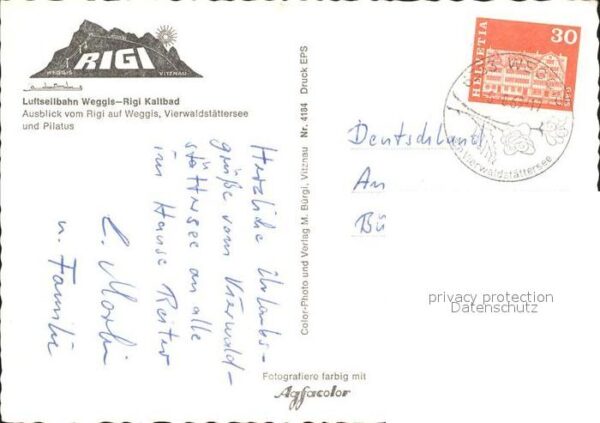 RIGI
WEGGIS VITZNAU
Luftseilbahn Weggis—Rigi Kaltbad
Ausblick vom Rigi auf Weggis, Vierwaldstättersee
und Pilatus
Herzliche Urlaubs-
grüße vom Vierwald-
stättersee an alle
im Hause Reiter
u. Familie
Color-Photo und Verlag M. Bürgi, Vitznau Nr. 4184 Druck EPS
Fotografiere farbig mit
Agfacolor
HELVETIA
30
WEGGIS
Vierwaldstättersee
Deutschland
An
Bü
privacy protection
Datenschutz